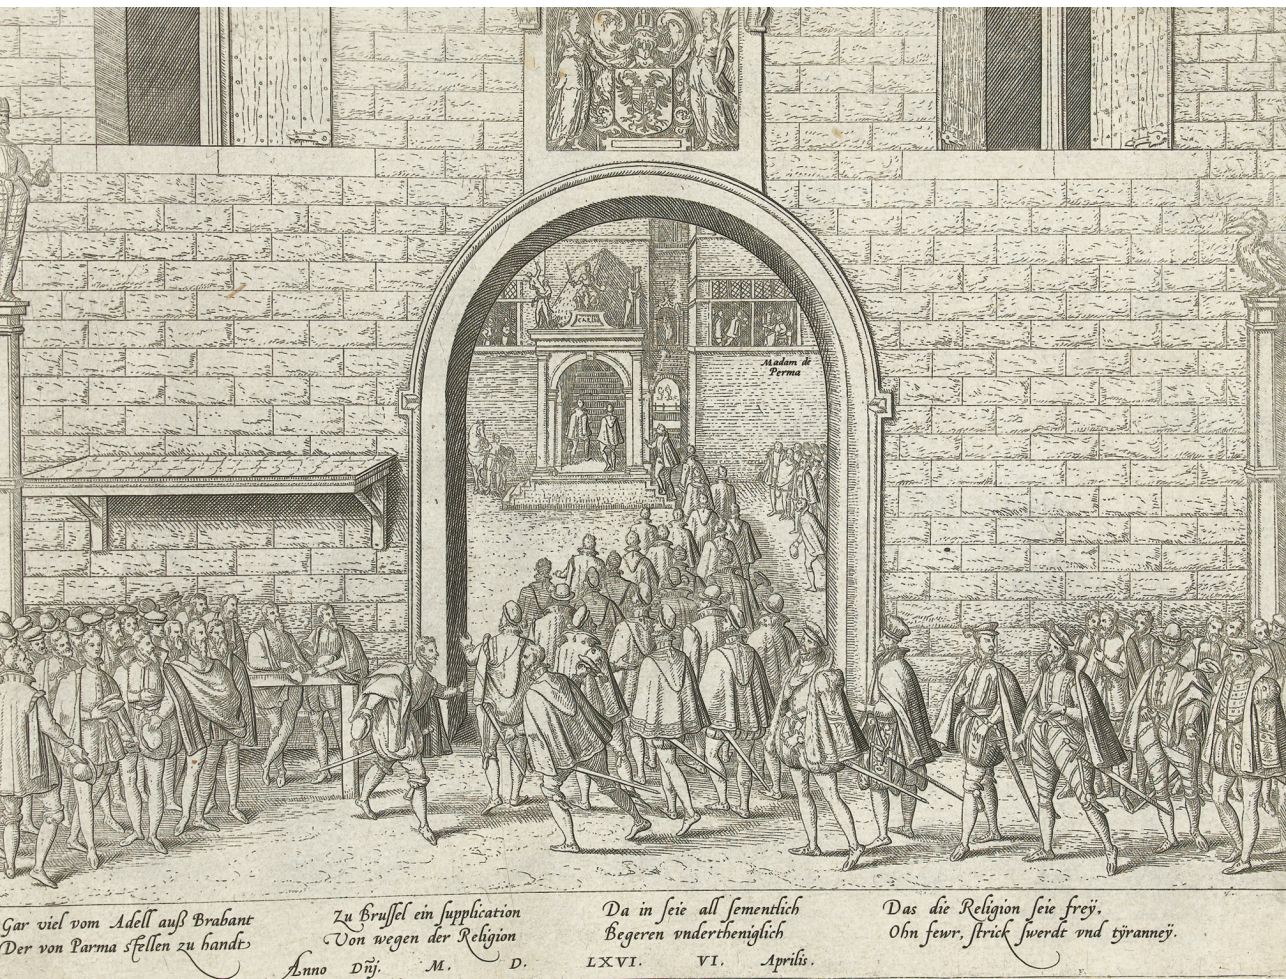 Madam de
Perma
Gar viel vom Adell auß Brabant
Der von Parma stellen zu handt
Zu Brussel ein supplication
Von wegen der Religion
Da in seie all sementlich
Begeren vndertheniglich
Das die Religion seie freÿ,
Ohn fewr, strick swerdt vnd tÿranneÿ.
Anno Dñj. M. D. LXVI. VI. Aprilis.